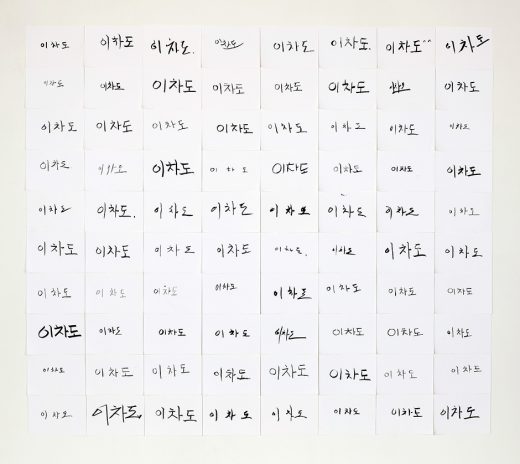 이차도 이차도 이차도. 이차도 이차도 이차도. 이차도^^ 이차도
이차도 이차도 이차도 이차도 이차도 이차도 이차도 이차도
이차도 이차도 이차도 이차도 이차도 이차도 이차도 이차도
이차도 이차도 이차도 이차도 이차도 이차도 이차도 이차도
이차도 이차도. 이차도 이차도 이차도 이차도 이차도 이차도
이차도 이차도 이차도 이차도 이차도. 이차도 이차도 이차도
이차도 이차도 이차도 이차도 이차도 이차도 이차도 이차도
이차도 이차도 이차도 이차도 이차도 이차도 이차도 이차도
이차도 이차도 이차도 이차도 이차도 이차도 이차도 이차도
이차도. 이차도 이차도 이차도 이차도 이차도 이차도 이차도